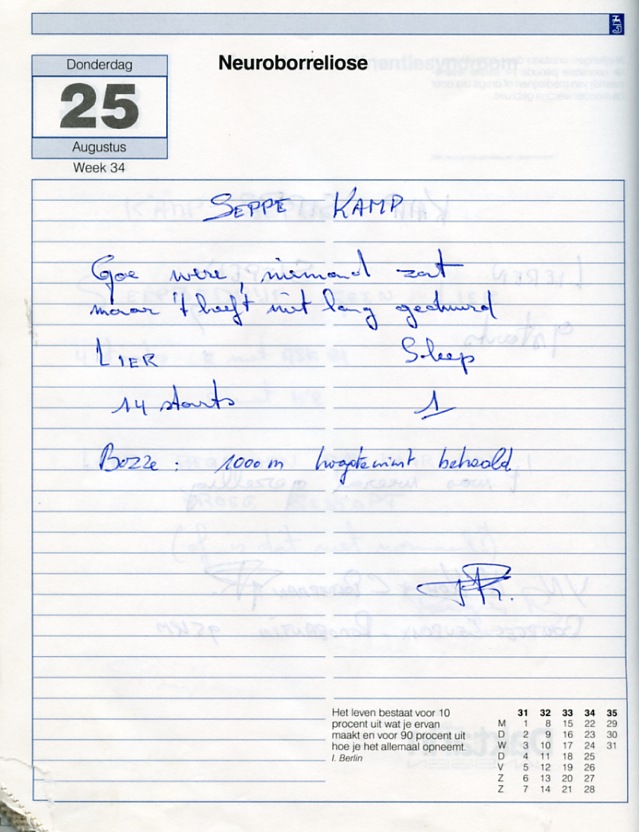 Donderdag
25
Augustus
Week 34
Neuroborreliose
SEPPE KAMP
Goe were, niemand zat
maar 't heeft niet lang geduurd
LIER Sleep
14 starts 1
Bozze : 1000 m hoogtewinst behaald.
Het leven bestaat voor 10
procent uit wat je ervan
maakt en voor 90 procent uit
hoe je het allemaal opneemt.
I. Berlin
31 32 33 34 35
M 1 8 15 22 29
D 2 9 16 23 30
W 3 10 17 24 31
D 4 11 18 25
V 5 12 19 26
Z 6 13 20 27
Z 7 14 21 28